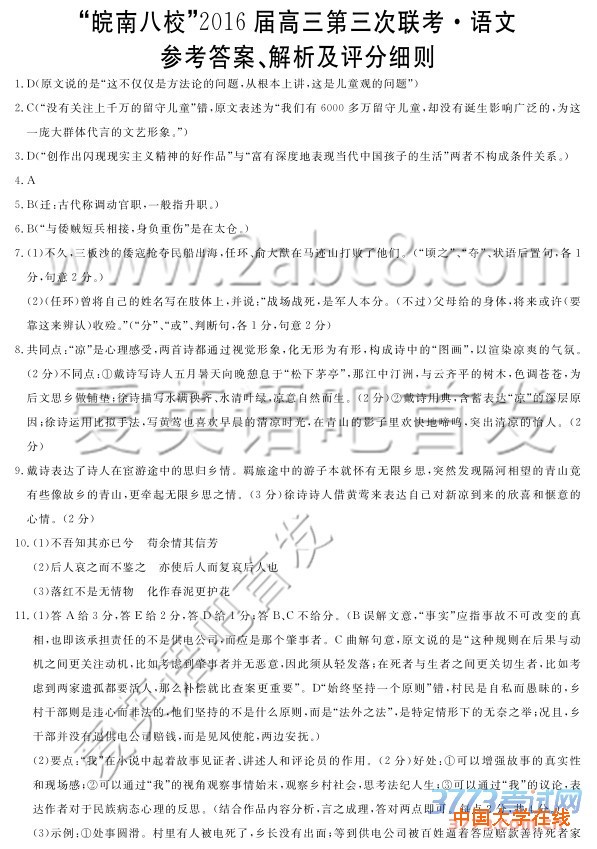 “皖南八校”2016届高三第三次联考·语文
参考答案、解析及评分细则
1.D(原文说的是“这不仅仅是方法论的问题,从根本上讲,这是儿童观的问题”)
2.C(“没有关注上千万的留守儿童”错,原文表述为“我们有6000多万留守儿童,却没有诞生影响广泛的,为这
一庞大群体代言的文艺形象。”)
3.D(“创作出闪现现实主义精神的好作品”与“富有深度地表现当代中国孩子的生活”两者不构成条件关系。)
4.A
5.B(迁:古代称调动官职,一般指升职。)
6.B(“与倭贼短兵相接,身负重伤”是在太仓。)
7.(1)不久,三板沙的倭寇抢夺民船出海,任环、俞大猷在马迹山打败了他们。(“顷之”、“夺”、状语后置句,各1
分,句意2分。)
(2)(任环)曾将自己的姓名写在肢体上,并说:“战场战死,是军人本分。(不过)父母给的身体,将来或许(要
靠这来辨认)收殓。”(“分”、“或”、判断句,各1分,句意2分)
8.共同点:“凉”是心理感受,两首诗都通过视觉形象,化无形为有形,构成诗中的“图画”,以渲染凉爽的气氛。
(2分)不同点:①戴诗写诗人五月暑天向晚憩息于“松下茅亭”,那江中汀洲,与云齐平的树木,色调苍苍,为
后文思乡做铺垫;徐诗描写水满秧齐、水清叶绿,凉意自然而生。(2分)②戴诗用典,含蓄表达“凉”的深层原
因;徐诗运用比拟手法,写黄莺也喜欢早晨的清凉时光,在青山的影子里欢快地啼鸣,突出清凉的怡人。(2
分)
9.戴诗表达了诗人在宦游途中的思归乡情。羁旅途中的游子本就怀有无限乡思,突然发现隔河相望的青山竟
有些像故乡的青山,更牵起无限乡思之情。(3分)徐诗诗人借黄莺来表达自己对新凉到来的欣喜和惬意的
心情。(2分)
10.(1)不吾知其亦已兮 苟余情其信芳
(2)后人哀之而不鉴之 亦使后人而复哀后人也
(3)落红不是无情物 化作春泥更护花
11.(1)答A给3分,答E给2分,答D给1分;答B、C不给分。(B误解文意,“事实”应指事故不可改变的真
相,也即该承担责任的不是供电公司,而应是那个肇事者。C曲解句意,原文说的是“这种规则在后果与动
机之间更关注动机,比如考虑到肇事者并无恶意,因此须从轻发落;在死者与生者之间更关切生者,比如考
虑到两家遗孤都要活人,那么补偿就比查案更重要”。D“始终坚持一个原则”错,村民是自私而愚昧的,乡
村干部则是违心而非法的,他们坚持的不是什么原则,而是“法外之法”,是特定情形下的无奈之举;况且,乡
干部并没有逼供电公司赔钱,而是见风使舵,两边安抚。)
(2)要点:“我”在小说中起着故事见证者、讲述人和评论员的作用。(2分)好处:①可以增强故事的真实性
和现场感;②可以通过“我”的视角观察事情始末,观察乡村社会,思考法纪人生;③可以通过“我”的议论,表
达作者对于民族病态心理的反思。(结合作品内容分析,言之成理,答对两点即可,每点2分,共
(3)示例:①处事圆滑。村里有人被电死了,乡长没有出面;等到供电公司被百姓逼着答应赔款善待死者家
www.2abc8.com
爱英语吧首发
爱英语吧首发
3773考试网
中国大学在线